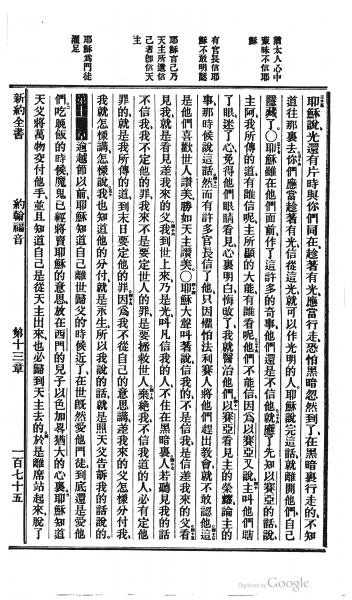 猶太人心中
蒙昧不信耶
穌
有官長信耶
穌不敢明認
耶穌言己乃
天主所遣信
己者卽信天
主
耶穌爲門徒
濯足
耶穌說光還有片時與你們同在趁著有光應當行走恐怕黑暗忽然到了在黑暗裏行走的不知
道往那裏去你們應當趁著有光信從這光就可以作光明的人耶穌說完這話就離開他們自己
隱藏了○耶穌雖在他們面前作了這許多的奇事他們還是不信他就應了先知以賽亞的話說
主阿我所傳的道有誰信呢主所顯的大能有誰看呢他們不能信因爲以賽亞又說主叫他們瞎
了眼迷了心免得他們眼睛看見心裏明白悔改了我就醫治他們以賽亞看見主的榮耀論主的
事那時候說這話然而有許多官長信了他只因懼怕法利賽人將他們趕出敎會就不敢認他這
是他們喜歡世人讚美勝如天主讚美○耶穌大聲叫著說信我的不是信我是信差我來的父看
見我就是看見差我來的父我到世上來乃是光叫凡信我的人不住在黑暗裏人若聽見我的話
不信我我不定他的罪我來不是要定世人的罪是要拯救世人棄絕我不信我道的人必有定他
罪的就是我所傳的道到末日要定他的罪因爲我不從自己的意思講差我來的父怎樣分付我
我就怎樣講怎樣說我也知道他的分付就是永生所以我說的話就是照天父告訴我的話說的
第十三章逾越節以前耶穌知道自己離世歸父的時候近了在世旣然愛他門徒到底還是愛他
們吃晚飯的時候魔鬼已經將賣耶穌的意思放在西門的兒子以色加畧猶大的心裏耶穌知道
天父將萬物交付他手並且知道自己是從天主出來也必歸到天主去的於是離席站起來脫了
新約全書 約翰福音 第十三章 一百七十五
Digitized by Google